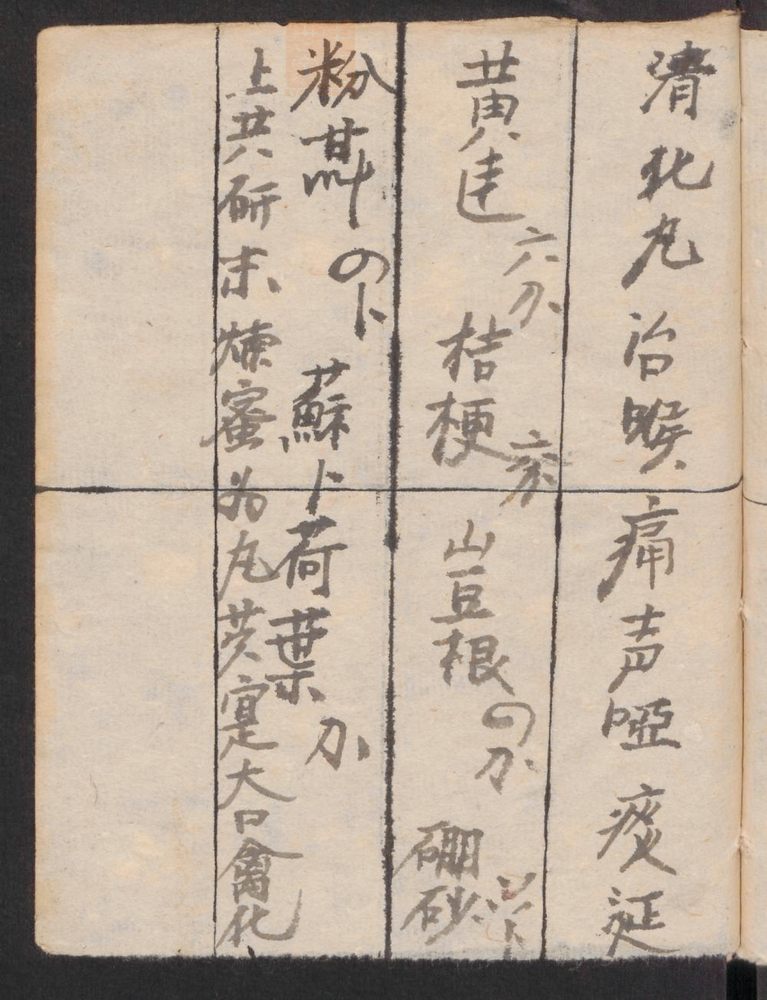 清化丸治喉痛声啞痰延
黄連六分桔梗六分山豆根四分硼砂
粉草四卜蘇卜荷葉分
上共研末煉蜜為丸芡實大口禽化